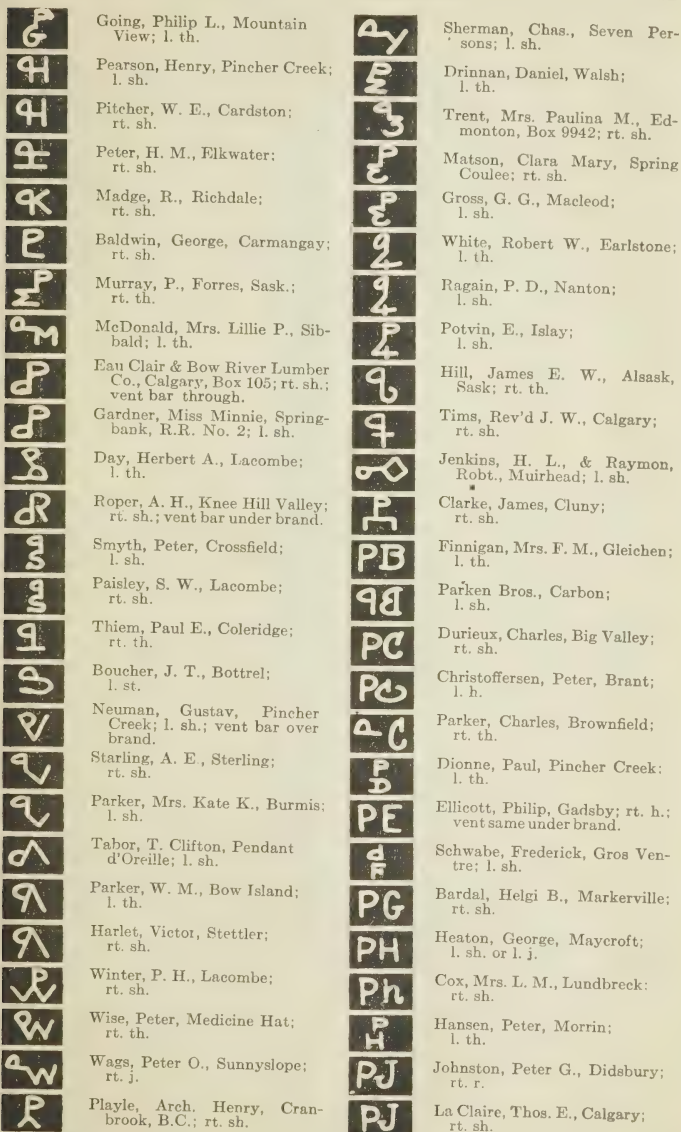 Going, Philip L., Mountain
View; l. th.
Pearson, Henry, Pincher Creek;
l. sh.
Pitcher, W. E., Cardston;
rt. sh.
Peter, H. M., Elkwater:
rt. sh.
Madge, R., Richdale;
rt. sh.
Baldwin, George, Carmangay;
rt. sh.
Murray, P., Forres, Sask.;
rt. th.
McDonald, Mrs. Lillie P., Sib-
bald; l. th.
Eau Clair & Bow River Lumber
Co., Calgary, Box 105; rt. sh.;
vent bar through.
Gardner, Miss Minnie, Spring-
bank, R.R. No. 2; l. sh.
Day, Herbert A., Lacombe;
l. th.
Roper, A. H., Knee Hill Valley;
rt. sh.; vent bar under brand.
Smyth, Peter, Crossfield;
l. sh.
Paisley, S. W., Lacombe;
rt. sh.
Thiem, Paul E., Coleridge;
rt. th.
Boucher, J. T., Bottrel;
l. st.
Neuman, Gustav, Pincher
Creek; l. sh.; vent bar over
brand.
Starling, A. E., Sterling;
rt. sh.
Parker, Mrs. Kate K., Burmis;
l. sh.
Tabor, T. Clifton, Pendant
d'Oreille; l. sh.
Parker, W. M., Bow Island;
l. th.
Harlet, Victor, Stettler;
rt. sh.
Winter, P. H., Lacombe;
rt. sh.
Wise, Peter, Medicine Hat;
rt. th.
Wags, Peter O., Sunnyslope;
rt. j.
Playle, Arch. Henry, Cran-
brook, B.C.; rt. sh.
Sherman, Chas., Seven Per-
sons; l. sh.
Drinnan, Daniel, Walsh;
l. th.
Trent, Mrs. Paulina M., Ed-
monton, Box 9942; rt. sh.
Matson, Clara Mary, Spring
Coulee; rt. sh.
Gross, G. G., Macleod;
l. sh.
White, Robert W., Earlstone;
l. th.
Ragain, P. D., Nanton;
l. sh.
Potvin, E., Islay;
l. sh.
Hill, James E. W., Alsask,
Sask; rt. th.
Tims, Rev'd J. W., Calgary;
rt. sh.
Jenkins, H. L., & Raymon,
Robt., Muirhead; l. sh.
Clarke, James, Cluny;
rt. sh.
PB Finnigan, Mrs. F. M., Gleichen;
l. th.
Parken Bros., Carbon;
l. sh.
PC Durieux, Charles, Big Valley;
rt. sh.
Christoffersen, Peter, Brant;
l. h.
Parker, Charles, Brownfield;
rt. th.
Dionne, Paul, Pincher Creek:
l. th.
PE Ellicott, Philip, Gadsby; rt. h.;
vent same under brand.
Schwabe, Frederick, Gros Ven-
tre; l. sh.
PG Bardal, Helgi B., Markerville;
rt. sh.
PH Heaton, George, Maycroft;
l. sh. or l. j.
Ph Cox, Mrs. L. M., Lundbreck:
rt. sh.
Hansen, Peter, Morrin;
l. th.
PJ Johnston, Peter G., Didsbury;
rt. r.
PJ La Claire, Thos. E., Calgary;
rt. sh.